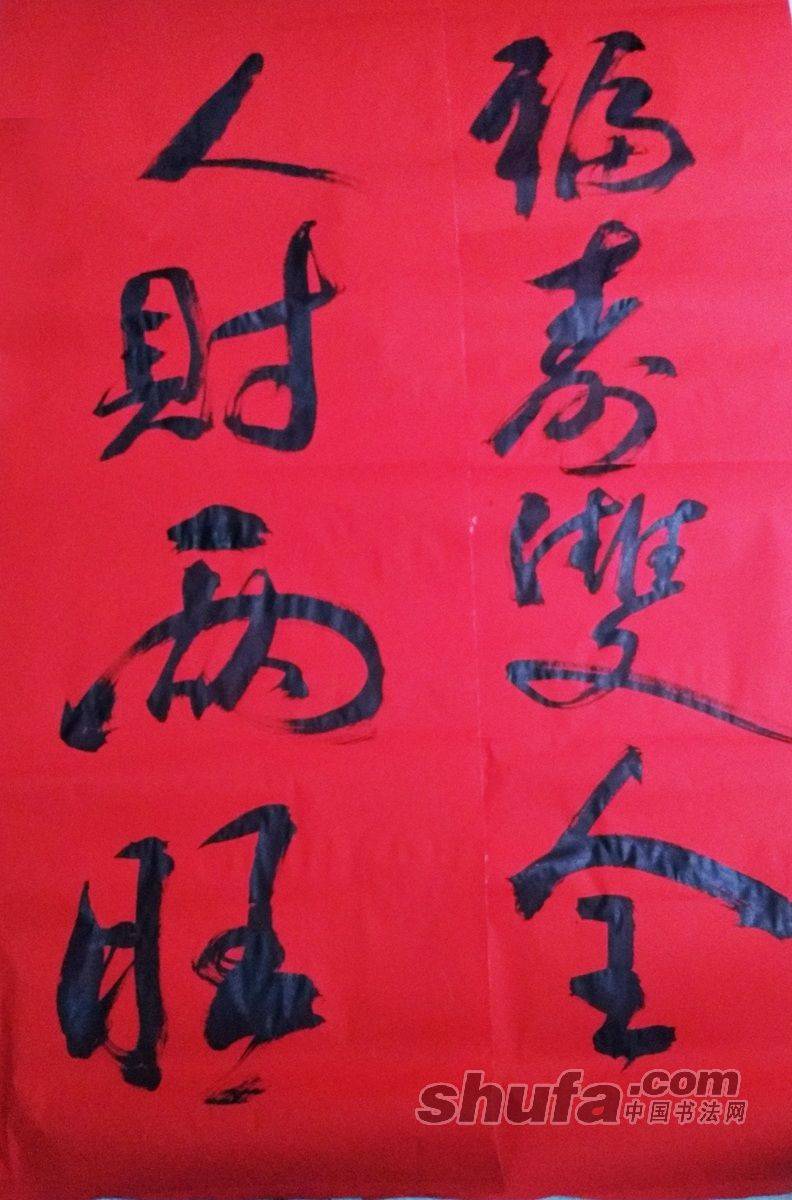 福壽雙全
人財兩旺
shufa.com
中国书法网